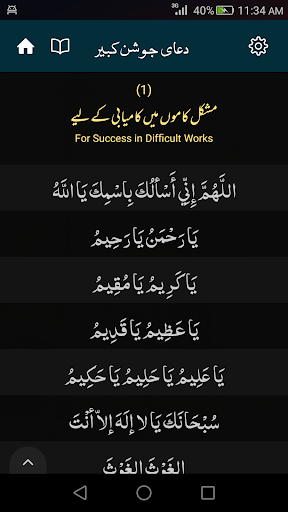 3G 4G 40% 11:34 AM
دعای جوشن کبیر
(1)
مشکل کاموں میں کامیابی کے لیے
For Success in Difficult Works
اَللّهُمَّ إِنِّي أَسْأَلُكَ بِاسْمِكَ يَا اَللّٰهُ
يَا رَحْمَنُ يَا رَحِيمُ
يَا كَرِيمُ يَا مُقِيمُ
يَا عَظِيمُ يَا قَدِيمُ
يَا عَلِيمُ يَا حَلِيمُ يَا حَكِيمُ
سُبْحَانَكَ يَا لا إِلَهَ إِلاّ أَنْتَ
الْغَوْثَ الْغَوْثَ